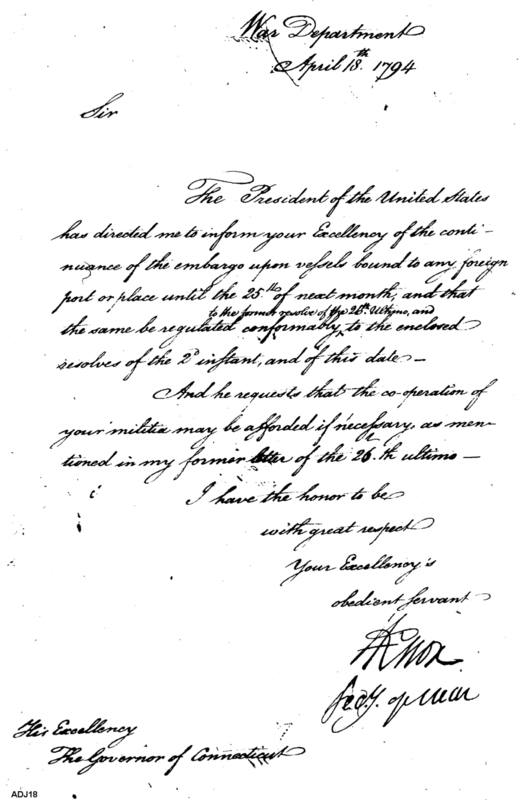 War Department
April 18th. 1794
Sir
The President of the United States
has directed me to inform your Excellency of the conti-
nuance of the embargo upon vessels bound to any foreign
port or place until the 25th of next month, and that
to the former resolve of the 26th. Ultimo, and
the same be regulated conformably, to the enclosed
resolves of the 2d instant, and of this date -
And he requests that the co-operation of
your militia may be afforded if necessary, as men-
tioned in my former letter of the 26.th ultimo -
I have the honor to be
with great respect
Your Excellency's
obedient servant
HKnox
Secy. of War
His Excellency
The Governor of Connecticut
ADJ18